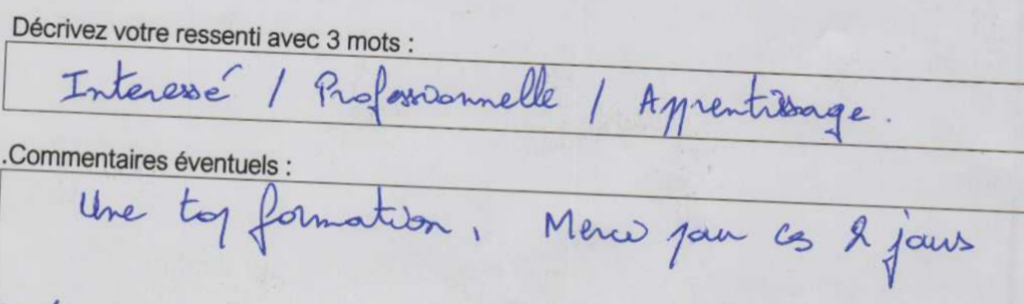 Décrivez votre ressenti avec 3 mots :
Interessé / Professionnelle / Apprentissage.
.Commentaires éventuels :
Une top formation, Merci pour ces 2 jours